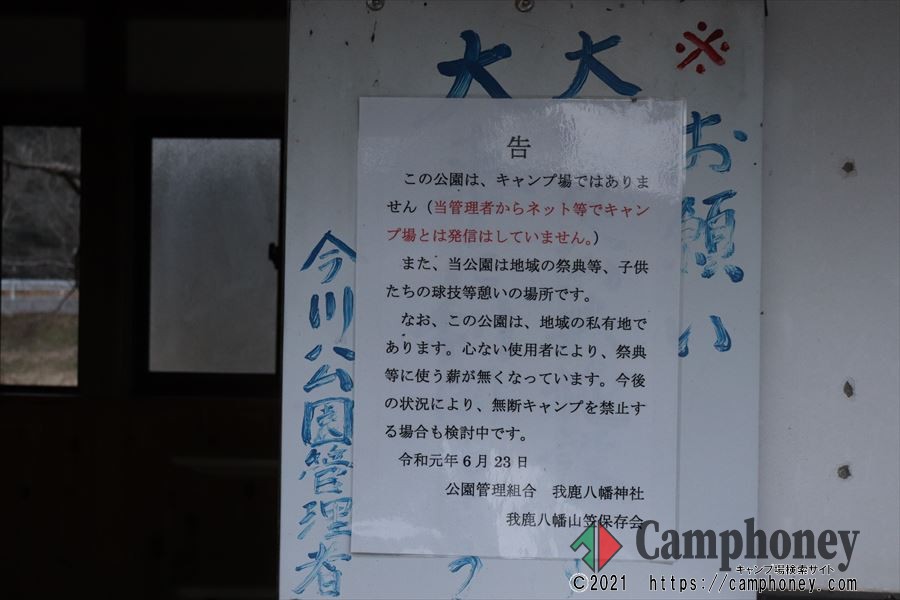 ※お願い
大
大
告
この公園は、キャンプ場ではありま
せん（当管理者からネット等でキャン
プ場とは発信はしていません。）
また、当公園は地域の祭典等、子供
たちの球技等憩いの場所です。
なお、この公園は、地域の私有地で
あります。心ない使用者により、祭典
等に使う薪が無くなっています。今後
の状況により、無断キャンプを禁止す
る場合も検討中です。
令和元年6月23日
公園管理組合　我鹿八幡神社
我鹿八幡山笠保存会
今川公園管理者
Camphoney
キャンプ場検索サイト
©2021 https://camphoney.com